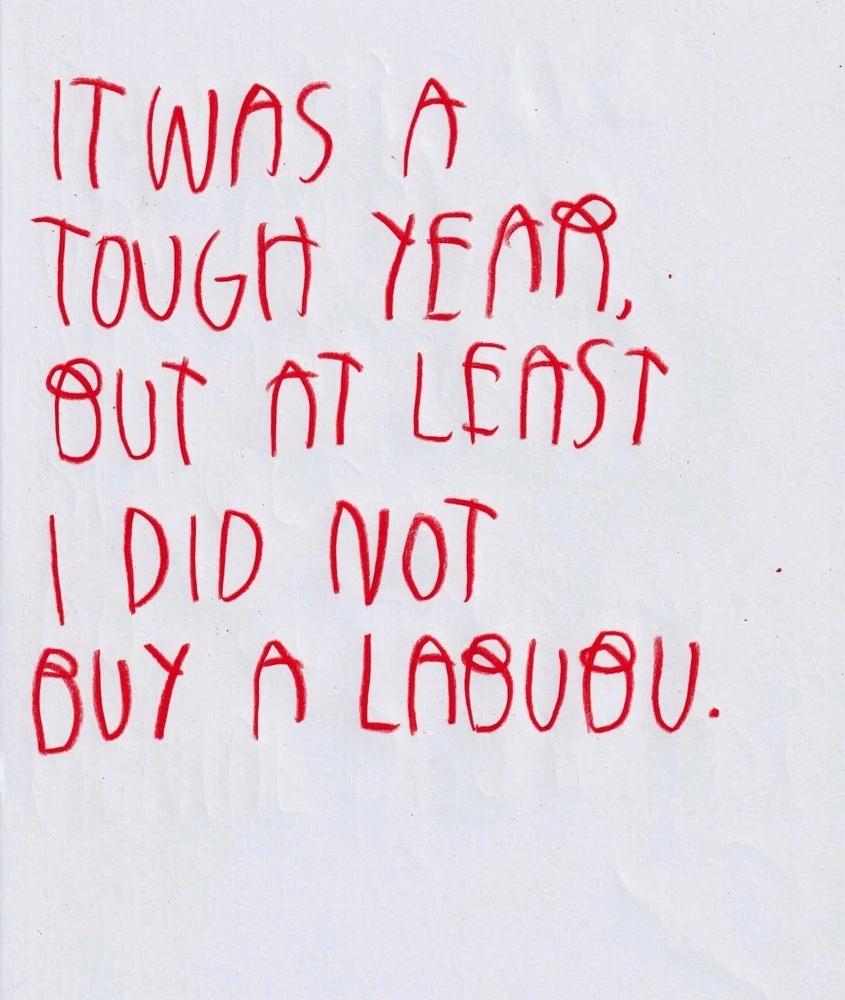 IT WAS A
TOUGH YEAR,
BUT AT LEAST
I DID NOT
BUY A LABUBU.